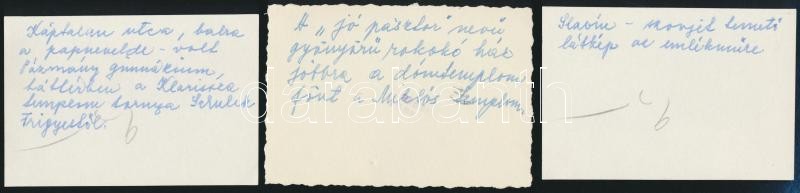 Káptalan utca, balra
a papnevelde - volt
Pázmány gimnázium,
háttérben a Klarissza
templom tornya Schulek
Frigyestől.
A „jó pásztor" nevű
gyönyörű rokokó ház
jobbra a dómtemplom
fönt a Miklós templom.
Slavin - szovjet temető
látkép az emlékműre
darabanth